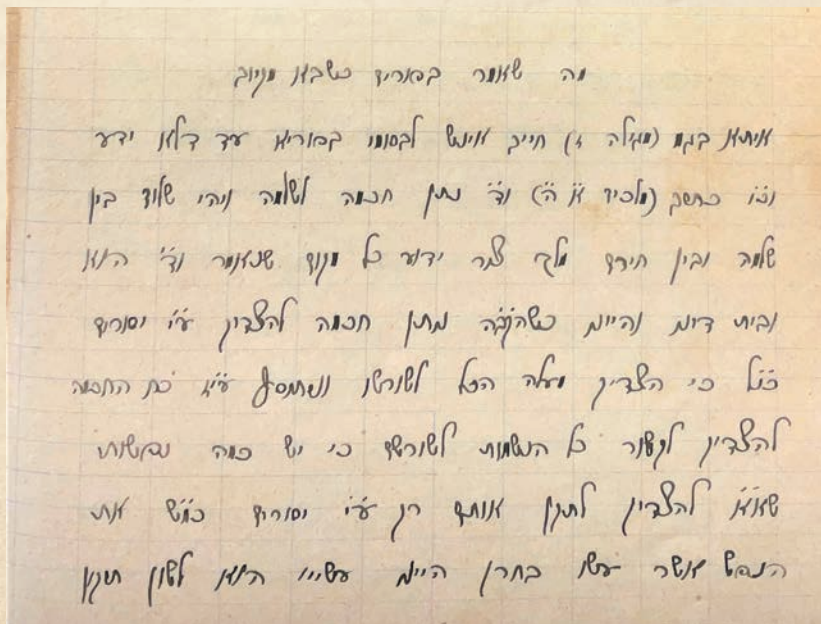 מה שאמר בפורים כשבאו מניוב
איתא בגמ (מגילה ז) חייב אינש לבסומי בפוריא עד דלא ידע
וכו' כתיב (מלכים א ה) וד' נתן חכמה לשלמה ויהי שלום בין
שלמה ובין חירם מלך צור ידוע כל מקום שנאמר וד' הוא
ובית דינו והיינו כשהקב"ה נותן חכמה להצדיק ע"י יסורים
כנ"ל כי הצדיק מעלה הכל לשורשו ונשתסף עי"ז כח החכמה
להצדיק לקשור כל הנשמות לשורשם כי יש כמה נפשות
שא"א להצדיק לתקן אותם רק ע"י יסורים כמ"ש את
הנפש אשר עשו בחרן היינו עשייי הוא לשון תקון